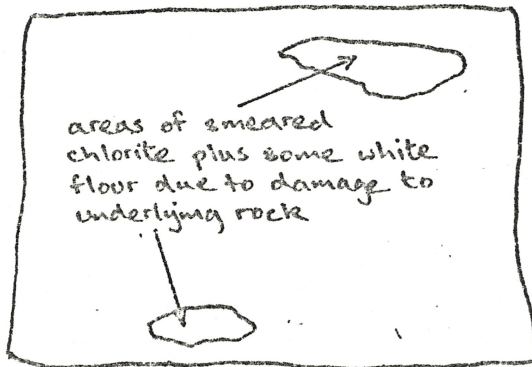 areas of smeared
chlorite plus some white
flour due to damage to
underlying rock